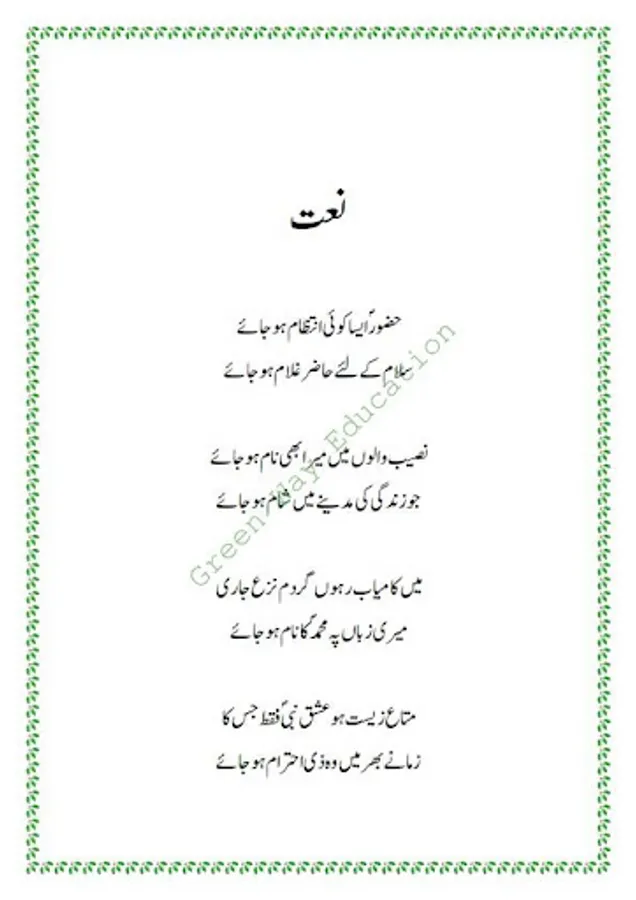 نعت
حضورؐ ایسا کوئی انتظام ہو جائے
سلام کے لئے حاضر غلام ہو جائے
نصیب والوں میں میرا بھی نام ہو جائے
جو زندگی کی مدینے میں شام ہو جائے
میں کامیاب رہوں گر دم نزع جاری
میری زباں پہ محمدؐ کا نام ہو جائے
متاع زیست ہو عشق نبیؐ فقط جس کا
زمانے بھر میں وہ ذی احترام ہو جائے
Green Way Education